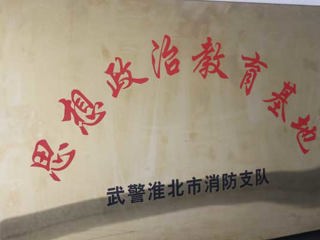 思想政治教育基地
武警淮北市消防支队